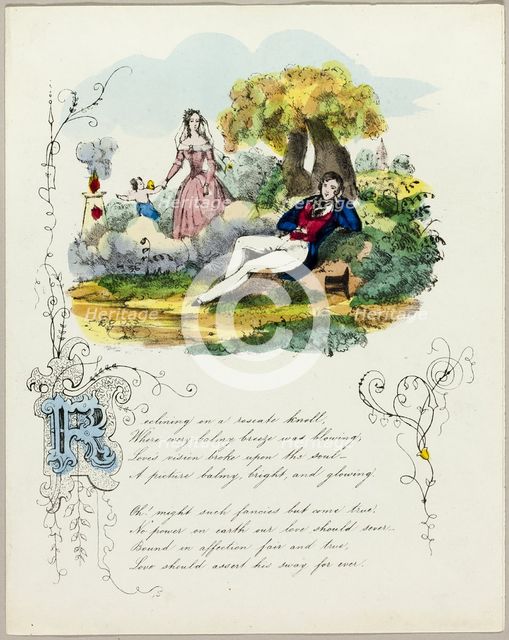 Reclining on a roseate knoll,
Where every balmy breeze was blowing,
Loves vision broke upon the soul—
A picture balmy, bright, and glowing.
Oh! might such fancies but come true,
No power on earth our love should sever—
Bound in affection fair and true,
Love should assert his sway for ever.
Heritage
Heritage
Heritage
Heritage
Heritage
Heritage
Heritage
Heritage
C